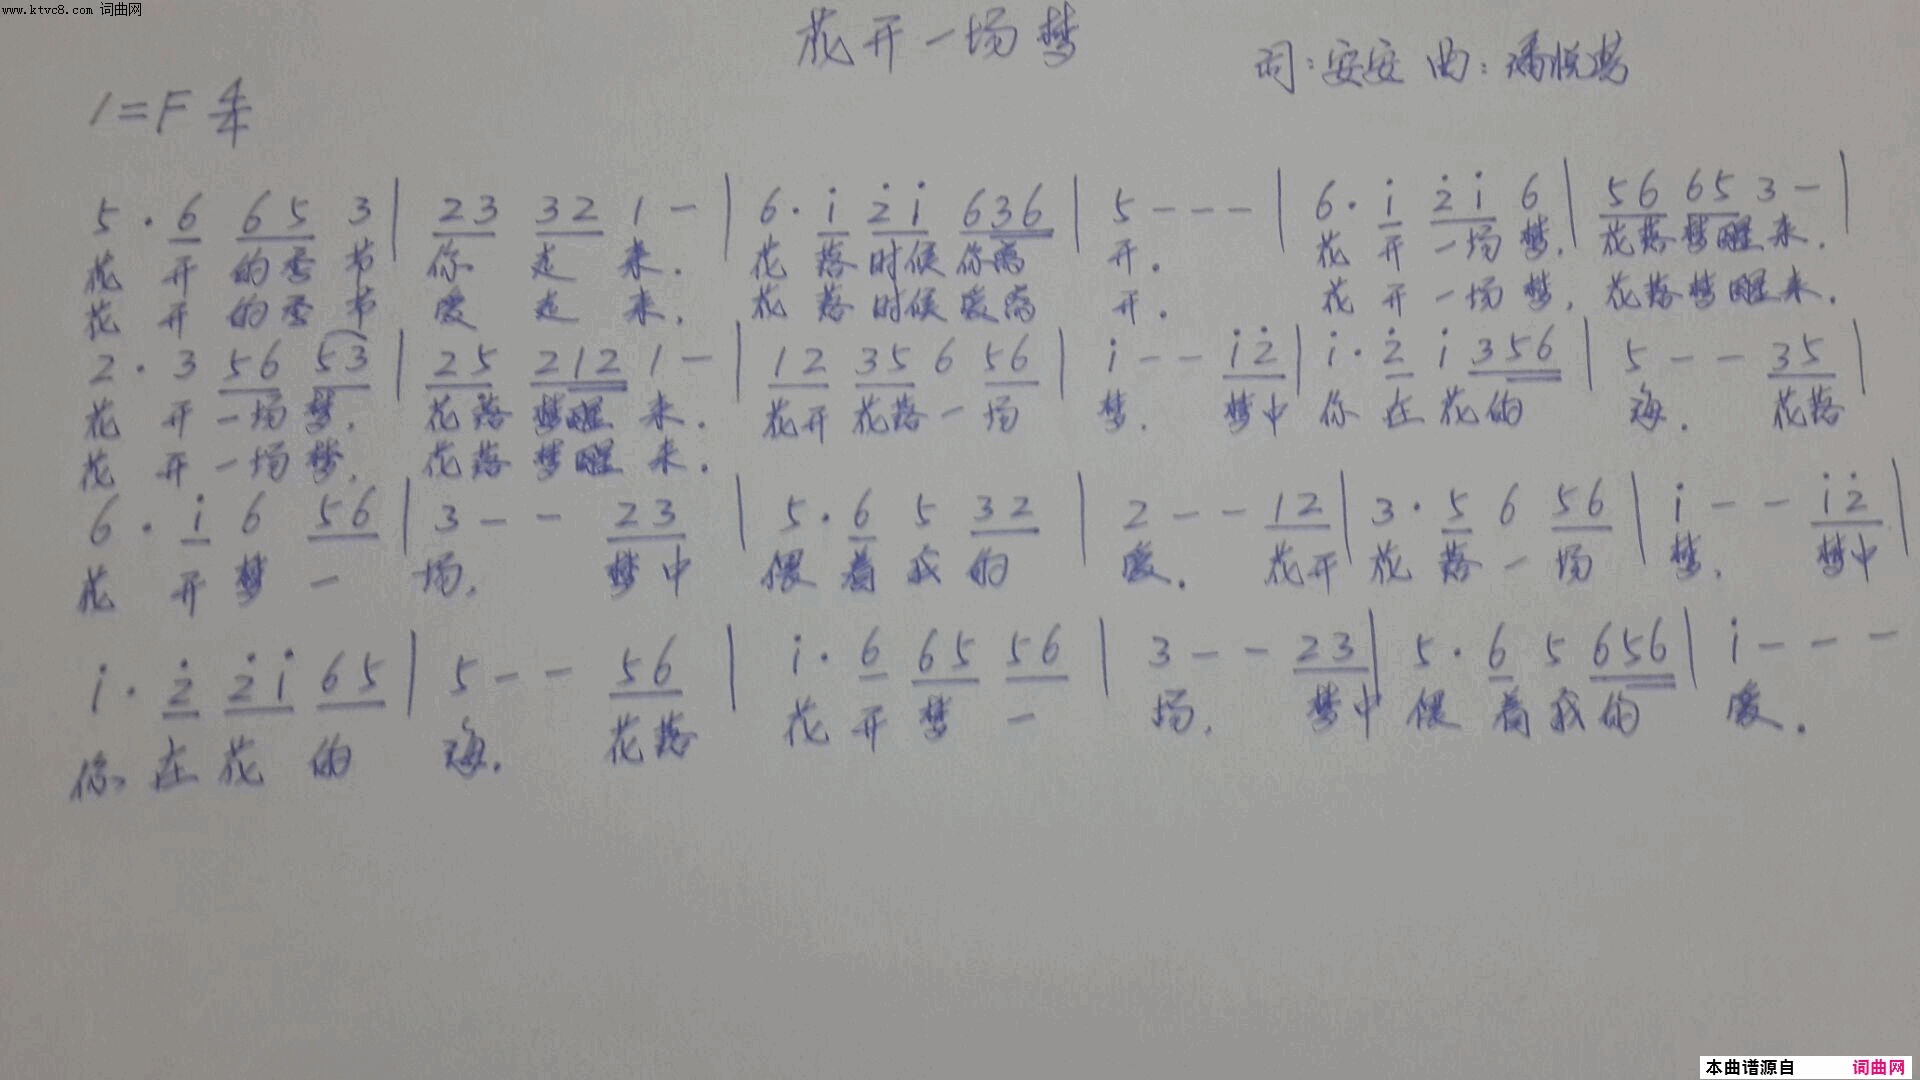 www.ktvc8.com 词曲网
花开一场梦
词:安安 曲:潘悦
1=F 4/4
5·6 65 3 | 23 32 1 - | 6·i̇ 2̇i̇ 636 | 5 - - - | 6·i̇ 2̇i̇ 6 | 56 65 3 - |
花开的季节 你走来. 花落时候你离开. 花开一场梦. 花落梦醒来.
花开的季节 爱走来. 花落时候爱离开. 花开一场梦, 花落梦醒来.
2·3 56 53 | 25 212 1 - | 12 35 6 56 | i̇ - - i̇2̇ | i̇·2̇ i̇ 356 | 5 - - 35 |
花开一场梦. 花落梦醒来. 花开花落一场梦. 梦中你在花的海. 花落
花开一场梦. 花落梦醒来.
6·i̇ 6 56 | 3 - - 23 | 5·6 5 32 | 2 - - 12 | 3·5 6 56 | i̇ - - i̇2̇ |
花开梦一场. 梦中偎着我的爱. 花开花落一场梦. 梦中
i̇·2̇ 2̇i̇ 65 | 5 - - 56 | i̇·6 65 56 | 3 - - 23 | 5·6 5 656 | i̇ - - -
你在花的海. 花落花开梦一场. 梦中偎着我的爱.
本曲谱源自 词曲网